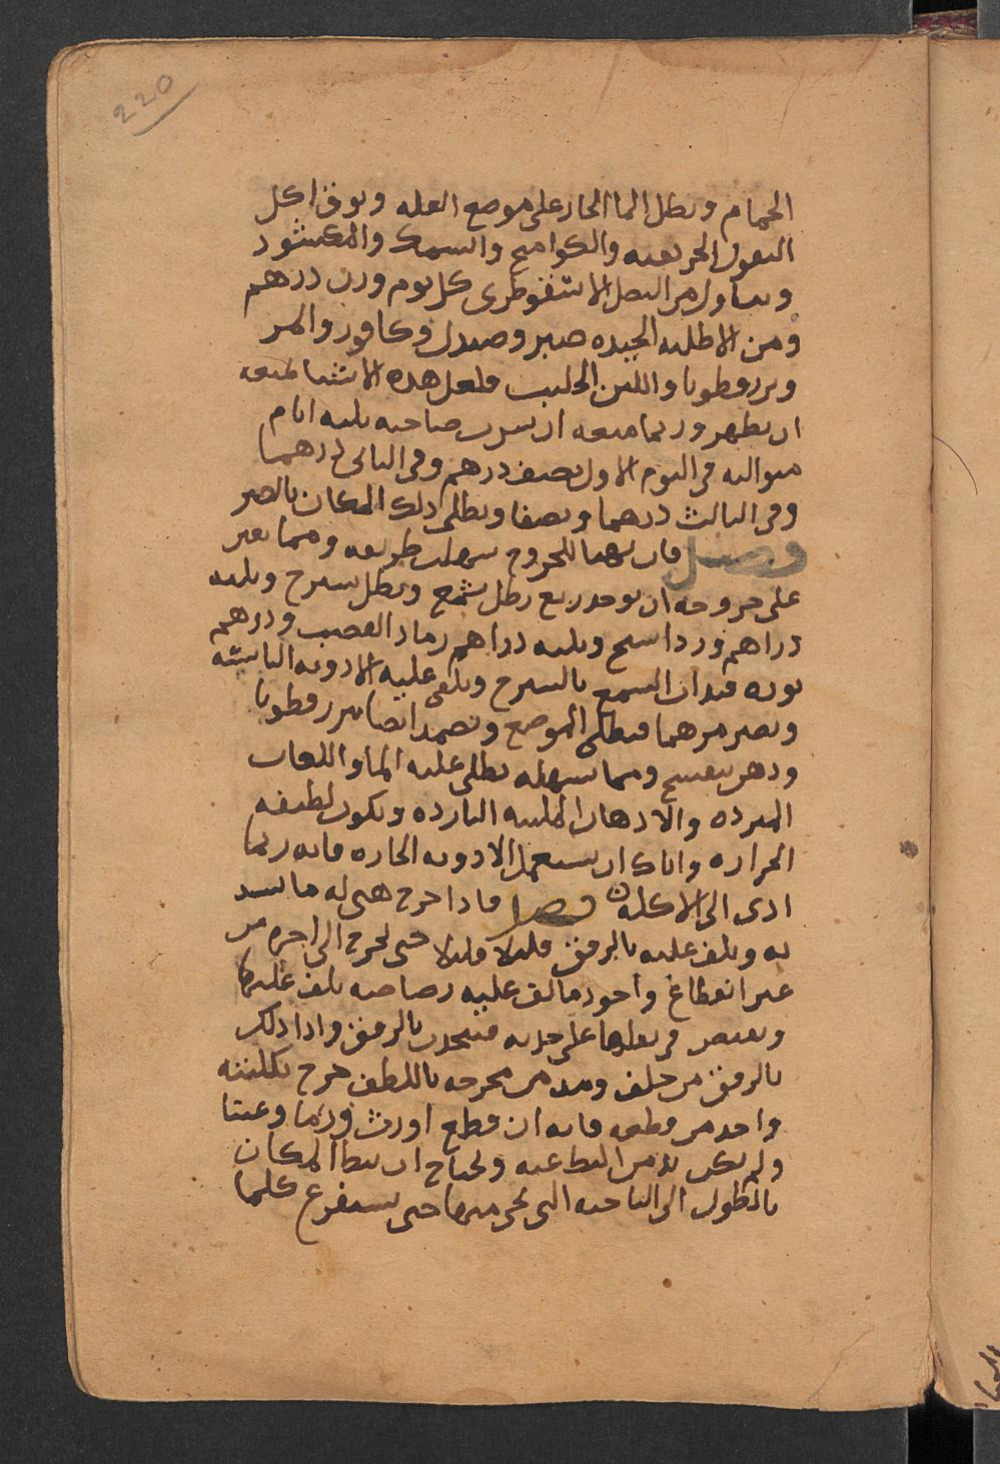 220
الحمام وىطل الما الحار على موضع العله وىوقى اكل
البقول الحريفيه والكواميخ والسمك والمكشود
وىىىاول من البصل الاسقوطرى كل يوم وزن درهم
ومن الاطليه الجيده صبر وصندل وكافور والمر
وبزر قطونا واللبن الحليب فلعل هذه الاشيا تمنعه
ان يظهر وربما منعه ان يشرب صاحبه ثلثه ايام
متواليه فى اليوم الاول نصف درهم وفى الثانى درهما
وفى الثالث درهما ونصفا ويطلى ذلك المكان بالصبر
فصل فان تهيا للخروج سهلت طريقه ومما يعين
على خروجه ان يوخذ ربع رطل شمع ورطل سيرج وثلثه
دراهم مرداسنج وثلثه دراهم رماد القصب ودرهم
نوره فيداف الشمع بالسيرج ويلقى عليه الادويه اليابسه
ويصير مرهما فيطلى الموضع ويضمد ايضا ببزر قطونا
ودهن بنفسج ومما يسهله يطلى عليه الما واللعاب
المبرده والادهان الملينه البارده ويكون لطيفه
الحراره واياك ان يستعمل الادويه الحاره فانه ربما
ادى الى الاكله فصل فاذا خرج هيى له ما يشد
به ويلف عليه بالرفق قليلا قليلا حتى يخرج الى اخره من
غير انقطاع واجود ما لف عليه رصاصه يلف عليها
ويقتصر فى ثقلها على جذبه فينجذب بالرفق واذا دلك
بالرفق من خلف ومد من مخرجه باللطف خرج بكليته
واحذر من قطعه فانه ان قطع اورث ورما وعفنا
ولم يكن بد من البط عنه ويحتاج ان يبط المكان
بالطول الى الناحيه التى يجى منها حتى يستفرغ كلما